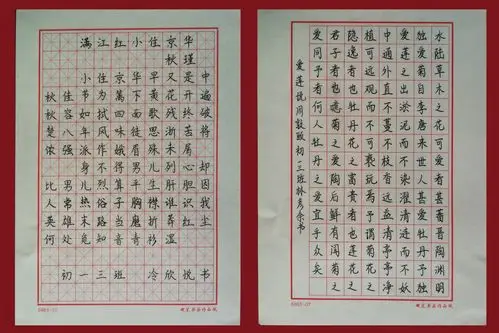 满江红小住京华
秋瑾
小住京华早又是中
秋佳节为篱下黄花开遍
秋容如拭四面歌残终破
楚八年风味徒思浙苦将
侬强派作娥眉殊未屑
身不得男儿列心却
比男儿烈算平生肝胆因
人常热俗子胸襟谁识我
英雄末路当磨折莽红尘
何处觅知音青衫湿
初一三班 冷欣悦书
硬笔书法作品纸
水陆草木之花可爱者甚蕃晋陶渊明
独爱菊自李唐来世人甚爱牡丹予独
爱莲之出淤泥而不染濯清涟而不妖
中通外直不蔓不枝香远益清亭亭净
植可远观而不可亵玩焉予谓菊花之
隐逸者也牡丹花之富贵者也莲花之
君子者也噫菊之爱陶后鲜有闻莲之
爱同予者何人牡丹之爱宜乎众矣
爱莲说周敦颐初一三班林彦余书
6985-07
硬笔书法作品纸